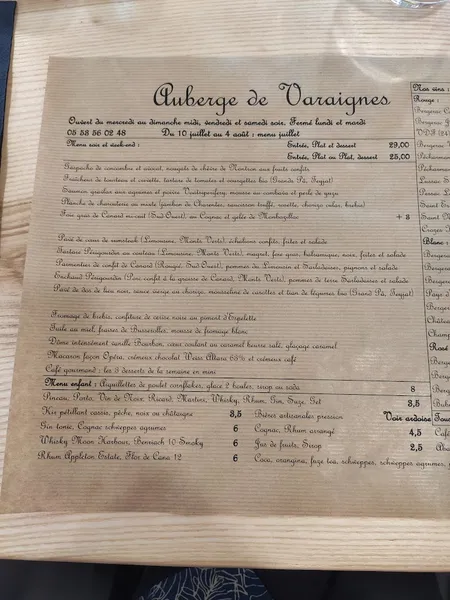 Auberge de Varaignes
Ouvert du mercredi au dimanche midi, vendredi et samedi soir. Fermé lundi et mardi
05 53 56 02 48 Du 10 juillet au 4 août : menu juillet
Menu soir et week-end : Entrée, Plat et dessert 29,00
Entrée, Plat ou Plat, dessert 25,00
Gaspacho de concombre et yaourt, nougats de chèvre de Nontron aux fruits confits
Fraîcheur de tourteau et crevette, tartare de tomates et courgettes bio (Grand Pà, Teyjat)
Saumon gravlax aux agrumes et poivre Voatsiperifery, mousse au combava et perle de yuzu
Planche de charcuterie au mesclo (jambon de Charentes, saucisson truffé, noisette, chorizo cular, bichia)
Foie gras de Canard mi-cuit (Sud-Ouest), au Cognac et gelée de Monbazillac + 3
Pavé de cœur de rumsteak (Limousine, Monts Verts), échalions confits, frites et salade
Tartare Périgourdin au couteau (Limousine, Monts Verts), magret, foie gras, balsamique, noix, frites et salade
Parmentier de confit de Canard (Rougié, Sud-Ouest), pommes de Limousin et Sarladaises, pignons et salade
Enchaud Périgourdin (Porc confit à la graisse de Canard, Monts Verts), pommes de terre Sarladaises et salade
Pavé de dos de lieu noir, sauce vierge au chorizo, mousseline de carottes et tian de légumes bio (Grand Pà, Teyjat)
Fromage de brebis, confiture de cerise noire au piment d'Espelette
Tuile au miel, fraises de Busserolles, mousse de fromage blanc
Dôme intensément vanille Bourbon, cœur coulant au caramel beurre salé, glaçage caramel
Macaron façon Opéra, crémeux chocolat Weiss Altara 63% et crémeux café
Café gourmand : les 3 desserts de la semaine en mini
Menu enfant : Aiguillettes de poulet cornflakes, glace 2 boules, sirop ou soda 8
Pineau, Porto, Vin de Noix, Ricard, Martini, Whisky, Rhum, Gin, Suze, Get 3,5
Kir pétillant cassis, pêche, noix ou châtaigne 3,5 Bières artisanales pression Voir ardoise
Gin tonic, Cognac schweppes agrumes 6 Cognac, Rhum arrangé 4,5
Whisky Moon Harbour, Benriach 10 Smoky 6 Jus de fruits, Sirop 2,5
Rhum Appleton Estate, Flor de Cana 12 6 Coca, orangina, fuze tea, schweppes, schweppes agrumes,
Nos vins :
Rouge :
Bergerac
Bergerac
Bergerac
Pécharman
Pécharman
Saint
Saint
Blanc :
Berger
Berger
Berger
Pays d
Berger
Châtea
Champ
Rosé
Berg
Berg
Berg
Café